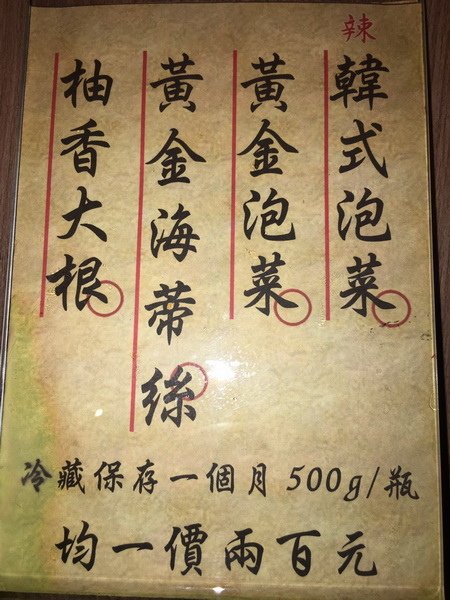 辣
韓式泡菜
黃金泡菜
黃金海蒂絲
柚香大根
冷藏保存一個月 500g/瓶
均一價兩百元